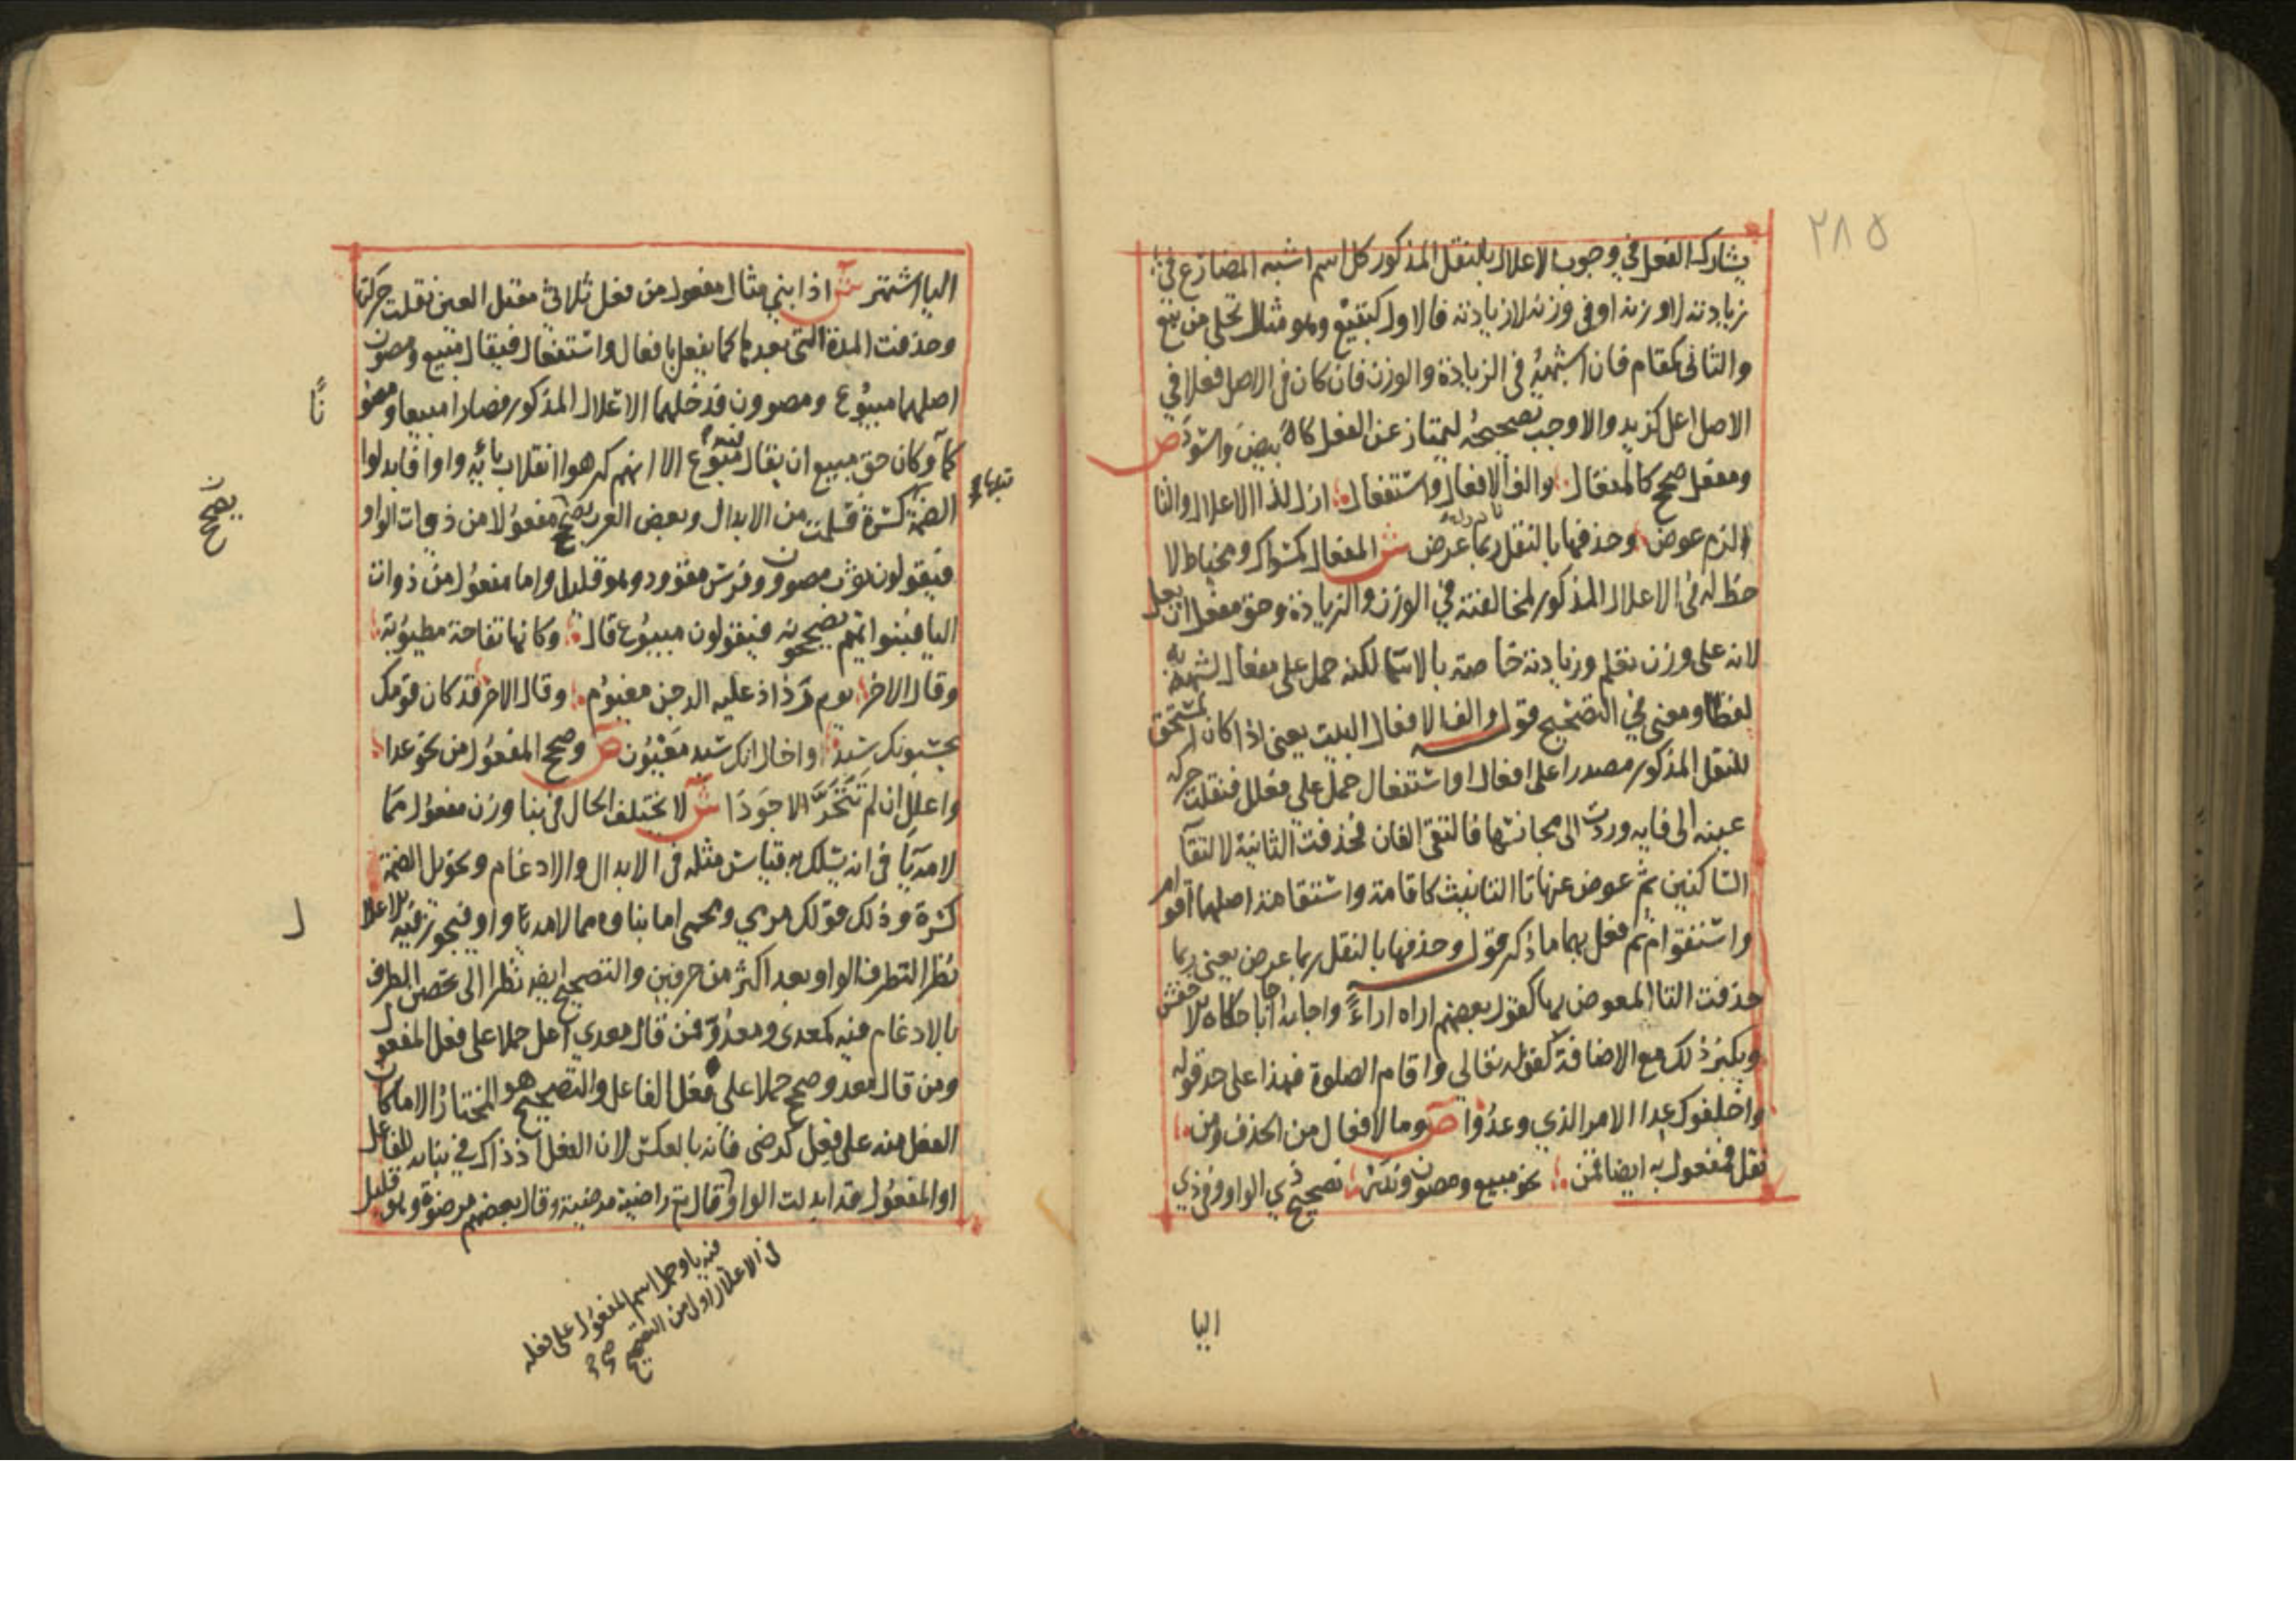 ٢٨٥
يشارك الفعل في وجوب الاعلال بالنقل المذكور كل اسم اشبه المضارع في
زيادته لا وزنه او في وزنه لا زيادته فالاول كتبيع وهو مثال تحلئ من بيع
والثاني كمقام فان اشبهه في الزيادة والوزن فان كان في الاصل فعلا في
الاصل اعل كزيد والا وجب تصحيحه ليمتاز عن الفعل كابيض واسود ص
ومفعل صحح كالمفعال والف الافعال واستفعال ازل لذا الاعلال والتا
الزم عوض وحذفها بالنقل ربما عرض ش المفعال كمسواك ومخياط لا
حظ له في الاعلال المذكور لمخالفته في الوزن والزيادة وحق مفعل ان يعل
لانه على وزن تعلم وزيادته خاصة بالاسما لكنه حمل على مفعال لشبهه به
لفظا ومعنى في التصحيح قوله والف الافعال البيت يعني اذا كان المستحق
للنقل المذكور مصدرا على افعال او استفعال حمل على فعله فنقلت حركة
عينه الى فايه وردت الى مجانسها فالتقى الفان فحذفت الثانية لالتقآ
الساكنين ثم عوض عنها تا التانيث كاقامة واستقامة اصلهما اقوام
واستقوام ثم فعل بهما ما ذكر قوله وحذفها بالنقل ربما عرض يعني ربما
حذفت التا المعوض بها كقول بعضهم اراه اراءً واجابه اجابا حكاه الاخفش
ويكثر ذلك مع الاضافة كقوله تعالي واقام الصلوة فهذا على حد قوله
واخلفوك عدا الامر الذي وعدوا ص وما لافعال من الحذف ومن
نقل فمفعول به ايضا قمن نحو مبيع ومصون وندر تصحيح ذي الواو وفي ذي
اليا
اليا اشتهر ش اذا بني مثال مفعول من فعل ثلاثي معتل العين نقلت حركتها
وحذفت المدة التي بعدها كما يفعل بافعال واستفعال فيقال مبيع ومصون
اصلهما مبيوع ومصوون فدخلهما الاعلال المذكور فصارا مبيعا ومصو
نًا
كما وكان حق مبيع ان يقال فيه مبوع الا انهم كرهوا انقلاب يائه واوا فابدلوا
الضمة كسرة فسلمت من الابدال وبعض العرب يصحح مفعولا من ذوات الواو
يصحح
فيقولون ثوب مصوون وفرس مقوود وهو قليل واما مفعول من ذوات
اليا فبنوا تميم يصححونه فيقولون مبيوع قال وكانها تفاحة مطيوبة
وقال الاخر يوم رذاذ عليه الدجن مغيوم وقال الاخر قد كان قومك
يحسبونك سيدا واخال انك سيد مغيون ص وصحح المفعول من نحو عدا
واعلل ان لم تتحر الاجودا ش لا يختلف الحال في بنا وزن مفعول مما
لامه يا في انه يسلك به قياس مثله في الابدال والادغام وتحويل الضمة
كسرة وذلك قولك مرمي ومحمي اما بناوه مما لامه واو فيجوز فيه الاعلا
ل
نظرا لتطرف الواو بعد اكثر من حرفين والتصحيح ايضا نظرا الى تحصن الطرف
بالادغام فيه كمعدي ومعدو فمن قال معدي اعل حملا على فعل المفعول
ومن قال معدو صحح حملا على فعل الفاعل والتصحيح هو المختار الا ما كان
الفعل منه على فعِل كرضى فانه بالعكس لان الفعل اذ ذاك في بنايه للفاعل
او المفعول قد ابدلت الواو قال تع راضية مرضية وقال بعضهم مرضوة وهو قليل
فيه يا وحمل اسم المفعول على فعله
في الاعلال اولى من التصحيح صح